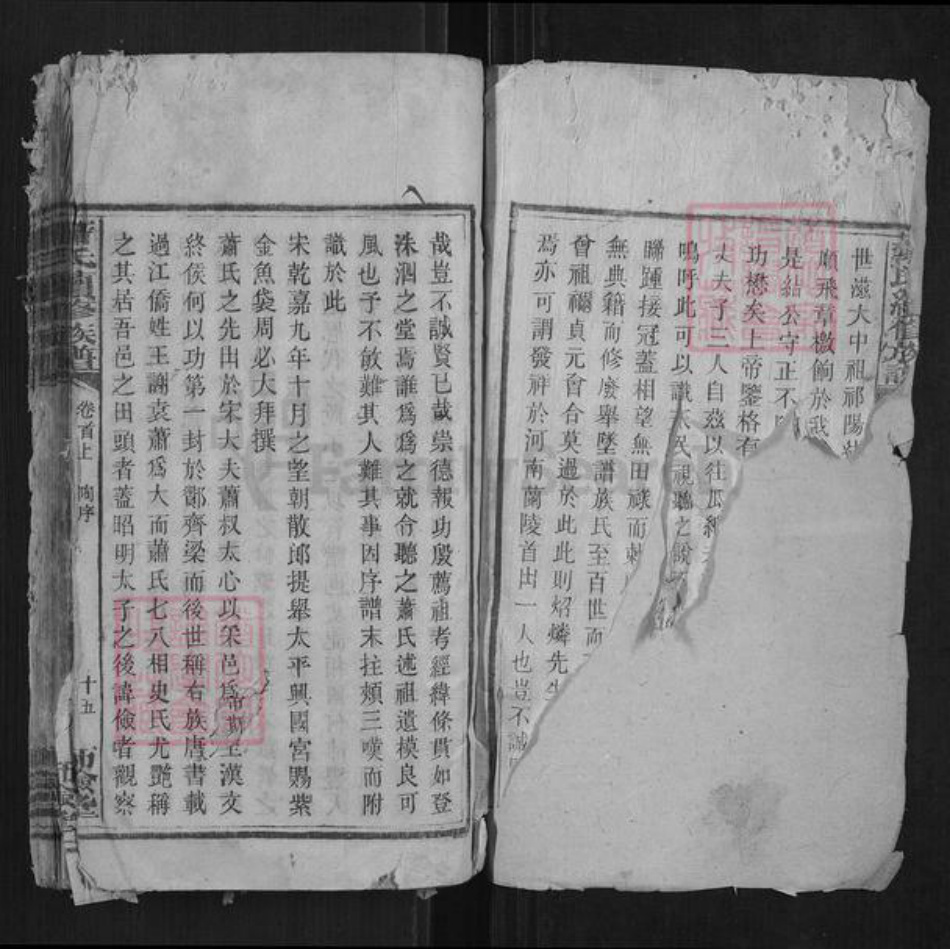 世滋大中祖祁陽
願飛章檄餉於我
是結公守正不
功懋矣上帝鑒格有
丈夫子三人自茲以往瓜
嗚呼此可以識 民視聽之說
聯踵接冠蓋相望無田祿而
無典籍而修廢舉墜譜族氏至百世而
曾祖禰貞元會合莫過於此此則熖燐先生
焉亦可謂發祥於河南蘭陵首出一人也豈不誠
哉豈不誠賢已哉崇德報功殷薦祖考經緯條貫如登
洙泗之堂焉誰為為之就令聽之蕭氏述祖遺模良可
風也予不敏難其人難其事因序譜末拄頰三嘆而附
識於此
宋乾嘉九年十月之望朝散郎提舉太平興國宮賜紫
金魚袋周必大拜撰
蕭氏之先出於宋大夫蕭叔大心以采邑為 至漢文
終侯何以功第一封於酇齊梁而後世稱右族唐書載
過江僑姓王謝袁蕭為大而蕭氏七八相史氏尤艷稱
之其居吾邑之田頭者蓋昭明太子之後諱儉者觀察
氏 修族譜
卷首上
序
十五